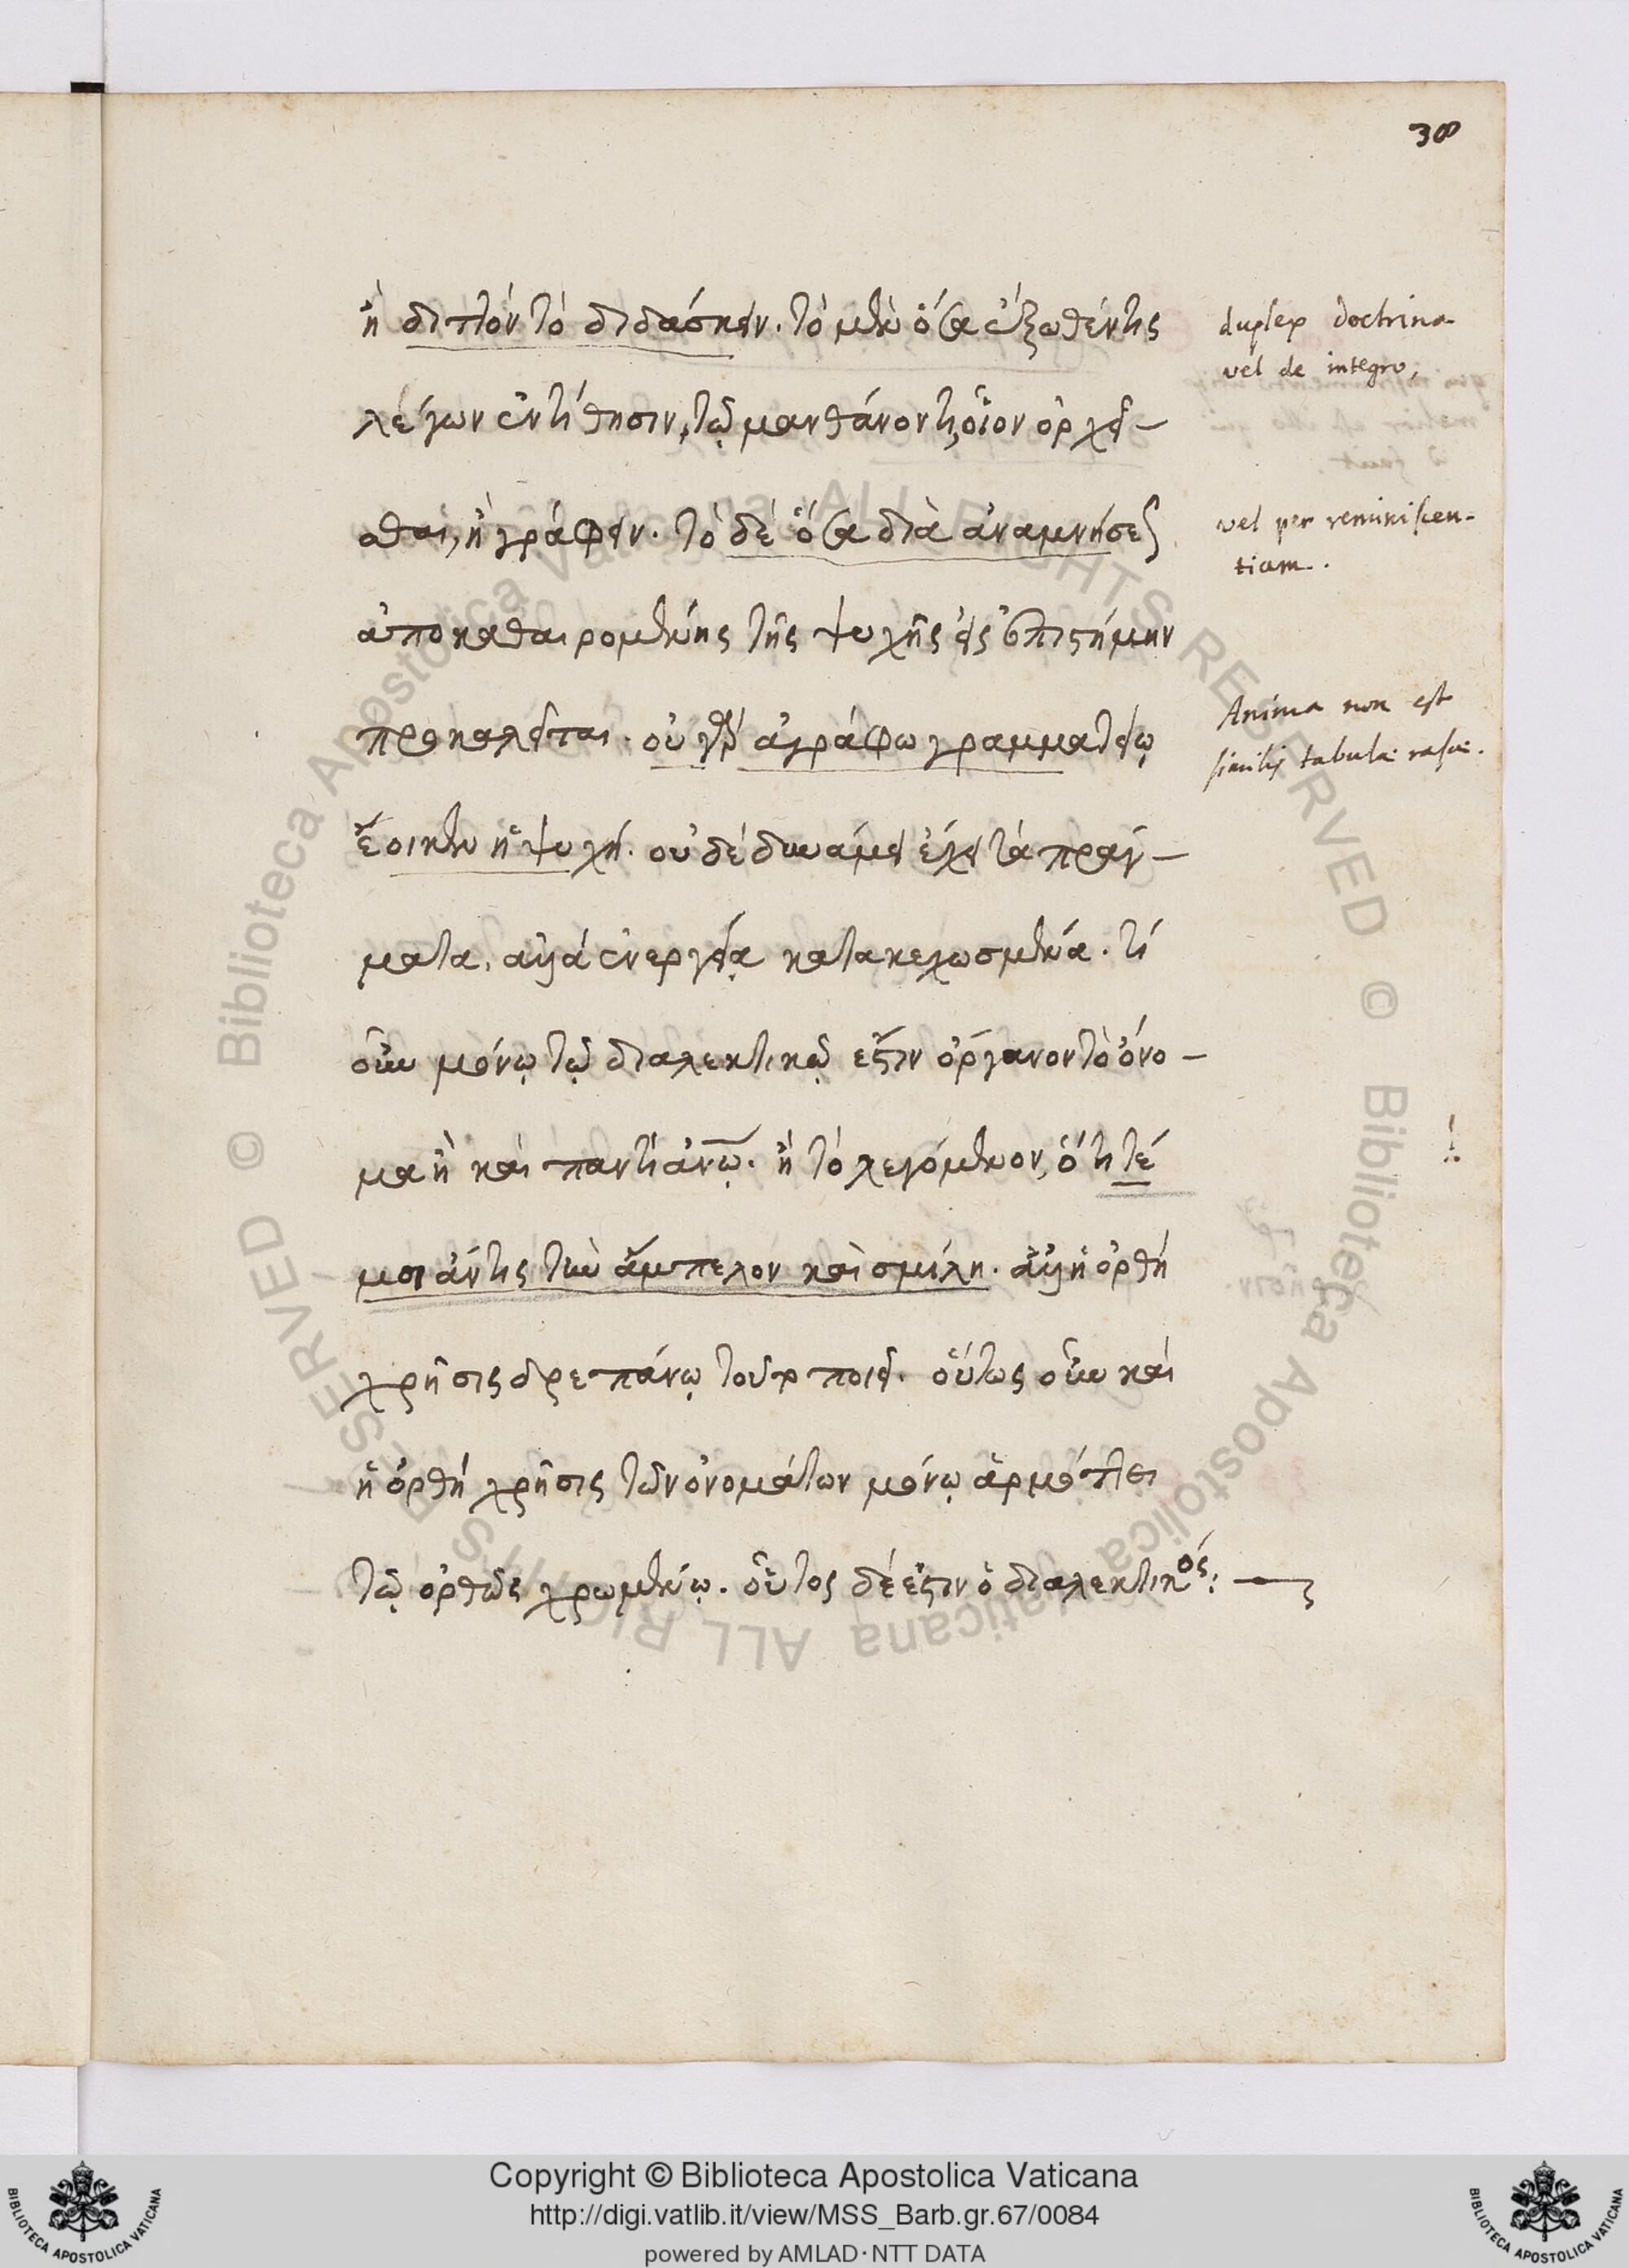 38
ἢ διπλὸν τὸ διδάσκειν. τὸ μὲν ὅσα ἔξωθέν τις
λέγων ἐντίθησιν, τῷ μανθάνοντι, οἷον ὀρχεῖ-
σθαι, ἢ γράφειν. τὸ δὲ ὅσα διὰ ἀναμνήσεως
ἀποκαθαιρομένης τῆς ψυχῆς εἰς ἐπιστήμην
προκαλεῖται. οὐ γὰρ ἀγράφω γραμματείῳ
ἔοικεν ἡ ψυχή. οὐδὲ δυνάμει ἔχει τὰ πράγ-
ματα, ἀλλὰ ἐνεργείᾳ κατακεχωσμένα. τί
οὖν μόνῳ τῷ διαλεκτικῷ ἐστιν ὄργανον τὸ ὄνο-
μα ἢ καὶ παντὶ ἀνῳ. ἢ τὸ λεγόμενον, ὅτι τέ
μοι ἄν τις τὴν ἄμπελον καὶ σμίλη. ἀλλ' ἡ ὀρθὴ
χρῆσις δρεπάνῳ τοῦτο ποιεῖ. οὕτως οὖν καὶ
ἡ ὀρθὴ χρῆσις τῶν ὀνομάτων μόνῳ ἁρμόττει
τῷ ὀρθῶς χρωμένῳ. οὗτος δέ ἐστιν ὁ διαλεκτικός:
duplex doctrina
vel de integro,
vel per reminiscen-
tiam.
Anima non est
similis tabulæ rasæ.
!
© Biblioteca Apostolica Vaticana ALL RIGHTS RESERVED
© Biblioteca Apostolica Vaticana ALL RIGHTS RESERVED
Copyright © Biblioteca Apostolica Vaticana
http://digi.vatlib.it/view/MSS_Barb.gr.67/0084
powered by AMLAD·NTT DATA
BIBLIOTECA APOSTOLICA VATICANA
BIBLIOTECA APOSTOLICA VATICANA